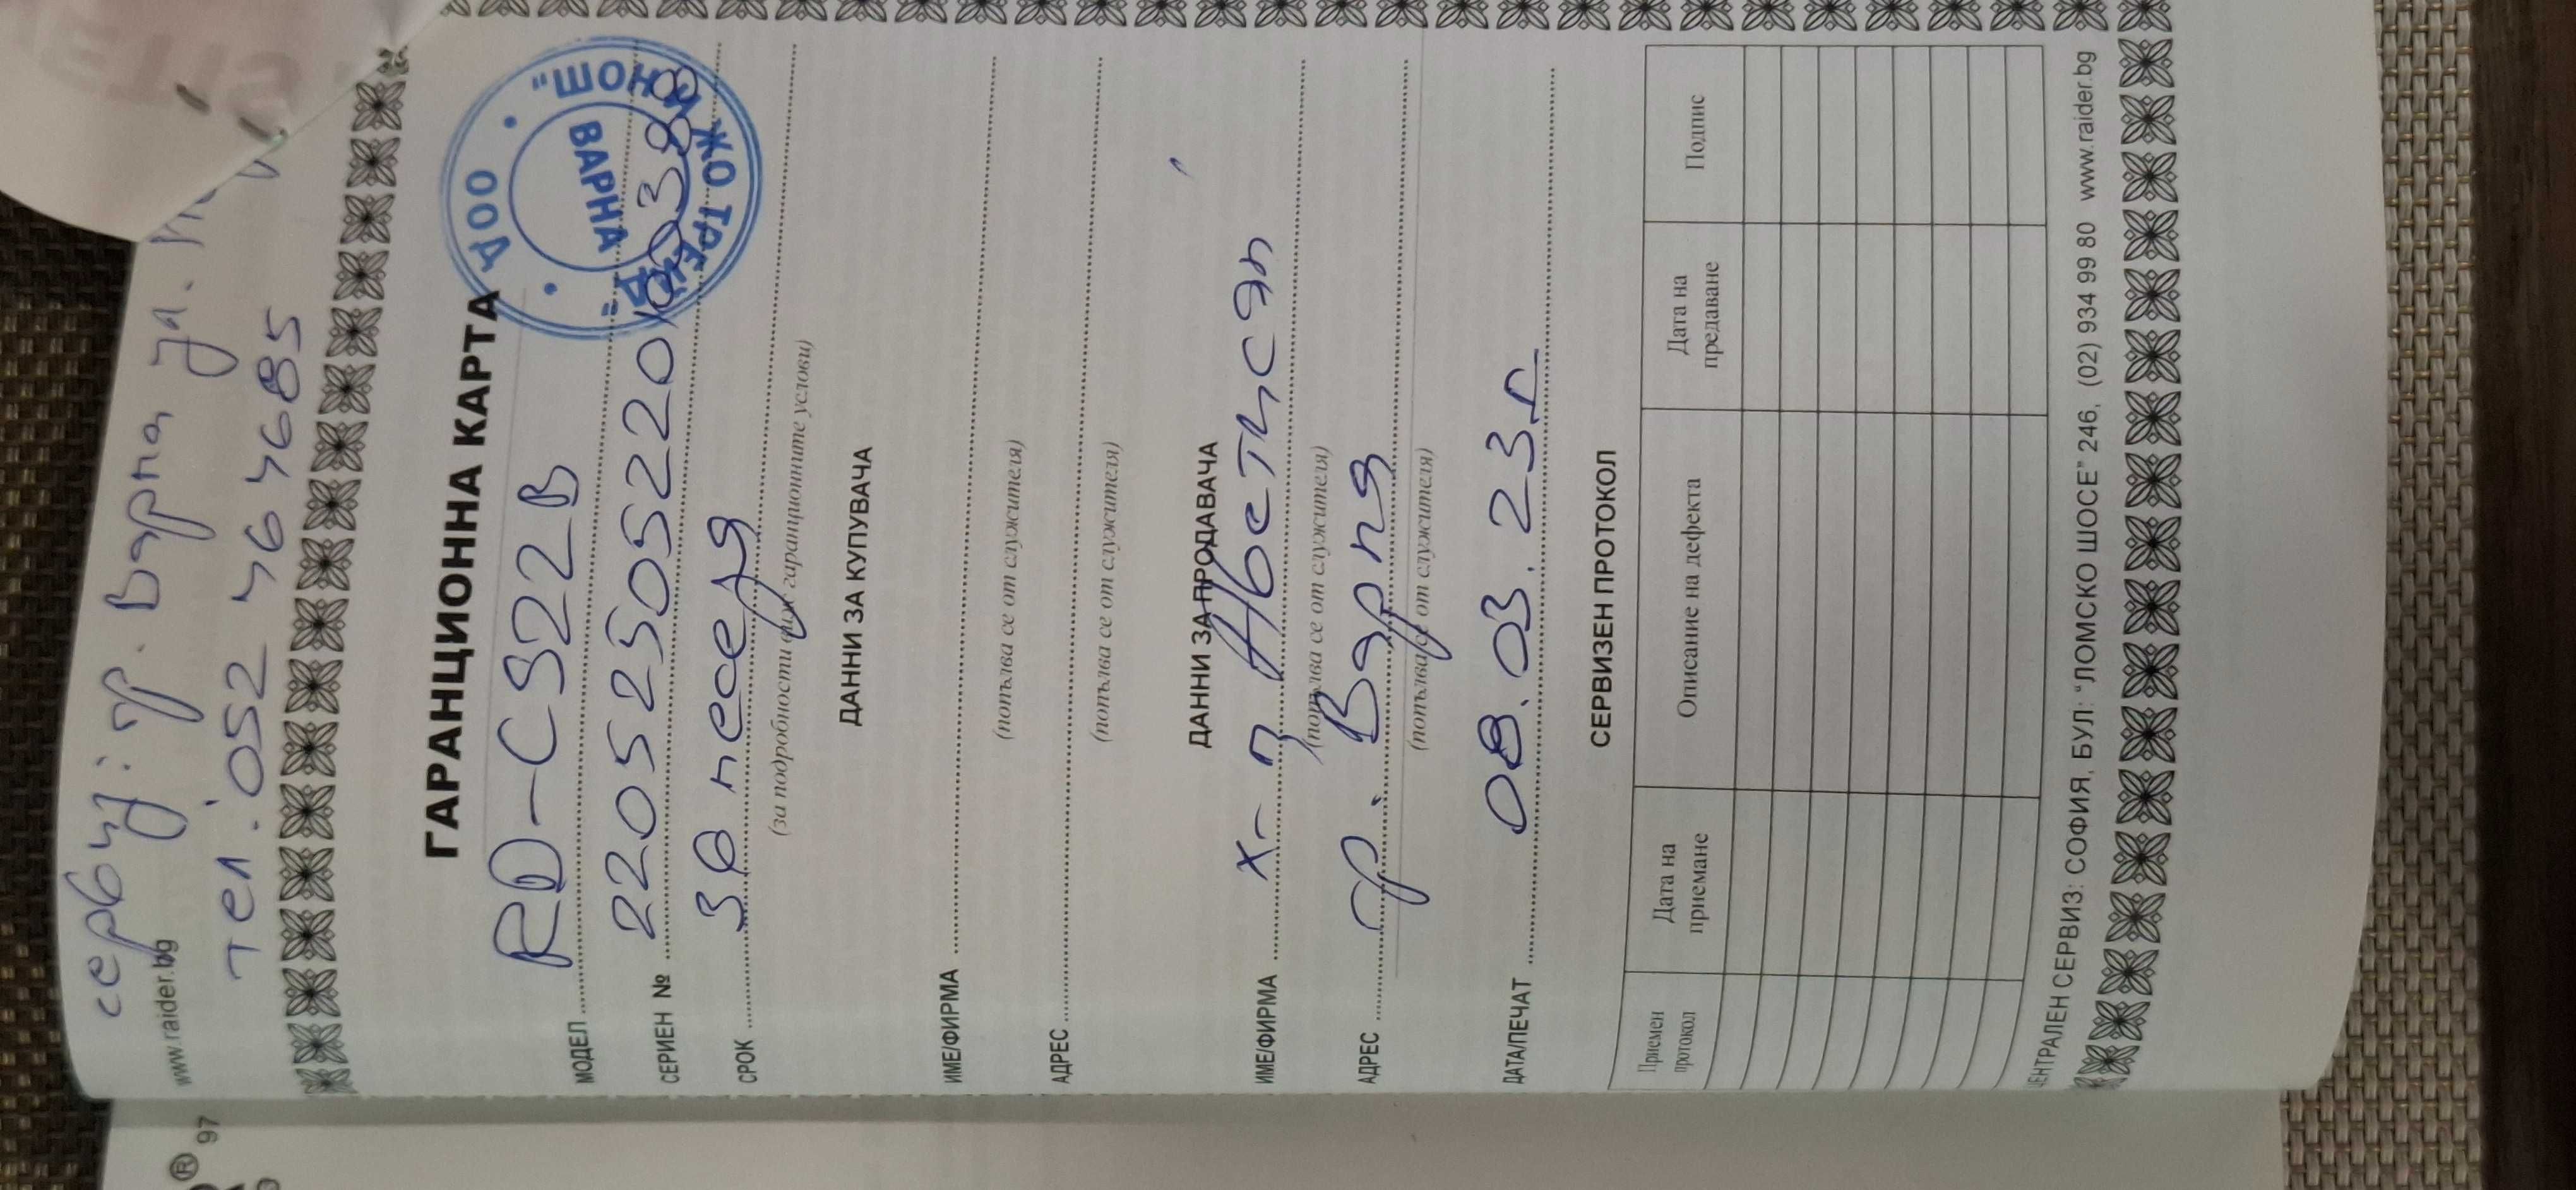 сервиз: гр. Варна ул.
www.raider.bg
тел.: 052 464685
ГАРАНЦИОННА КАРТА
МОДЕЛ RD-CS22B
СЕРИЕН №
СРОК 36 месеца
(за подробности виж гаранционните условия)
ООД
ВАРНА
ДАННИ ЗА КУПУВАЧА
ИМЕ/ФИРМА
(попълва се от служителя)
АДРЕС
(попълва се от служителя)
ДАННИ ЗА ПРОДАВАЧА
ИМЕ/ФИРМА
(попълва се от служителя)
АДРЕС гр. Варна
(попълва се от служителя)
ДАТА/ПЕЧАТ 08.03.23г
СЕРВИЗЕН ПРОТОКОЛ
Приемен протокол Дата на приемане Описание на дефекта Дата на предаване Подпис
ЦЕНТРАЛЕН СЕРВИЗ: СОФИЯ, БУЛ: "ЛОМСКО ШОСЕ" 246, (02) 934 99 80 www.raider.bg
97